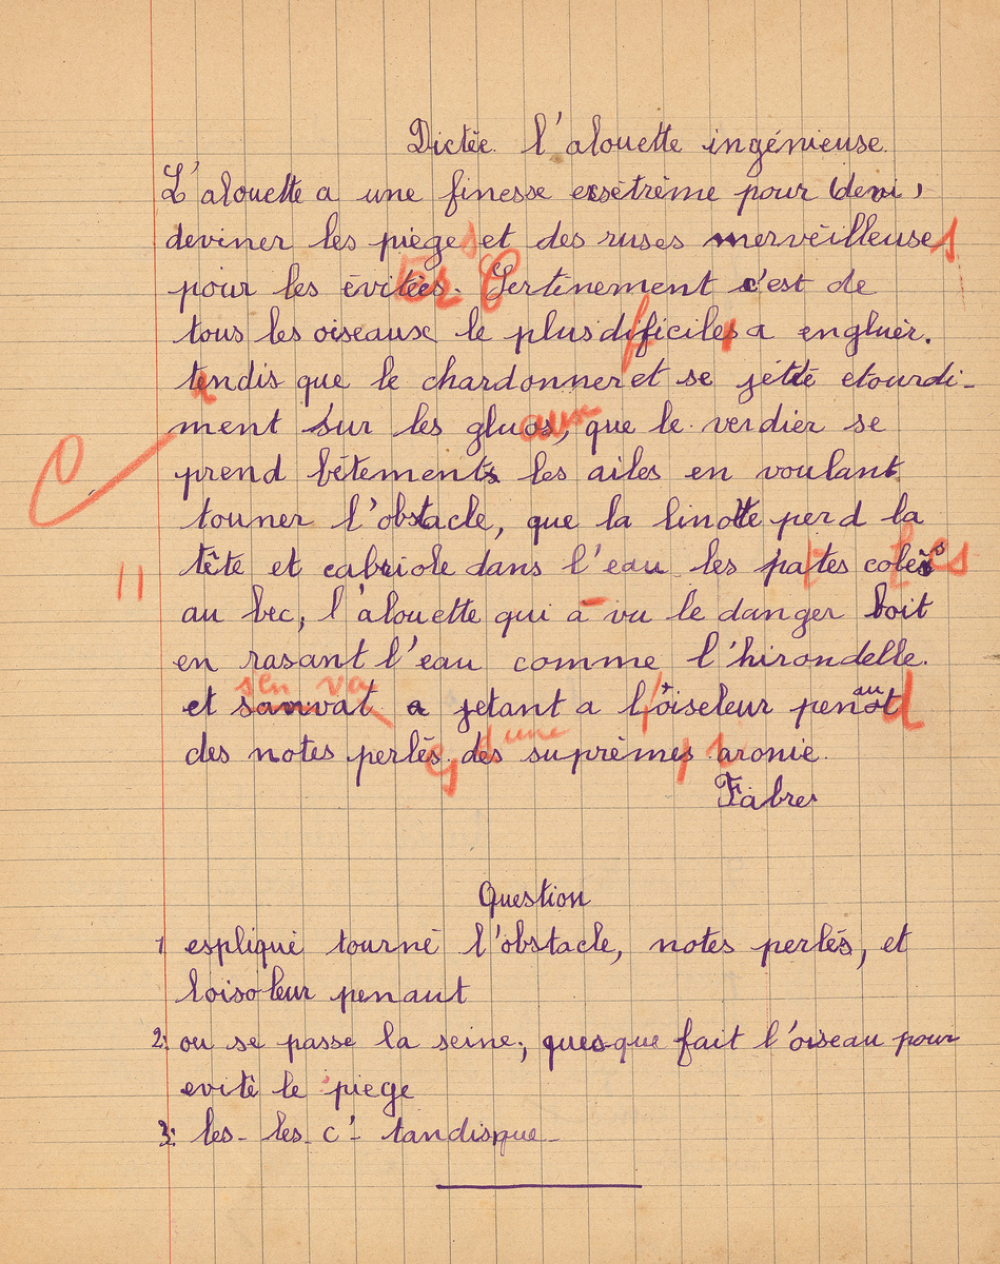 Dictée. l'alouette ingénieuse.
L'alouette a une finesse exsètrème pour (devi,
deviner les pièges et des ruses merveilleuses
pour les évitées. Certènement c'est de
tous les oiseaux le plus dificiles a engluer.
tendis que le chardonneret se jette etourdi-
ment sur les gluos, que le verdier se
prend bêtements les ailes en voulant
tourner l'obstacle, que la linotte perd la
tête et cabriole dans l'eau les pates colés
au bec, l'alouette qui à vu le danger boit
en rasant l'eau comme l'hirondelle.
sen va
et sanvat a jetant a l'oiseleur penaut
d'une
des notes perlés. des suprèmes aronie.
Fabres
Question
1 espliqué tourné l'obstacle, notes perlés, et
loisoleur penaut
2: ou se passe la seine, quesque fait l'oiseau pour
evitê le piege
3: les - les - c' - tandisque -